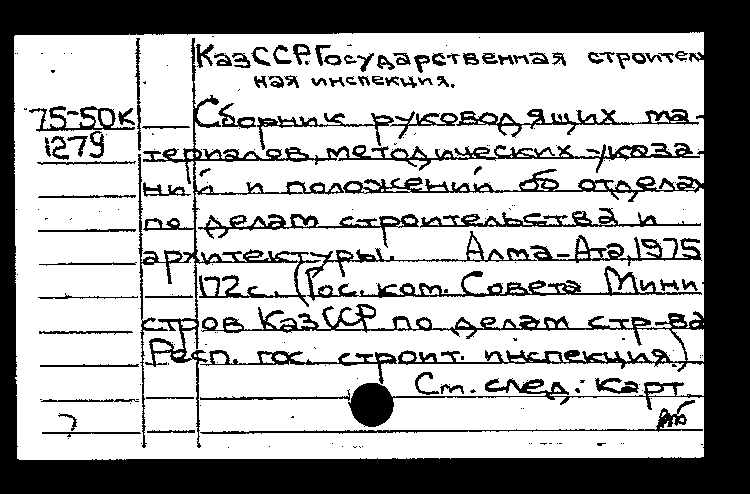 КазССР. Государственная строитель
ная инспекция.
75-50к
1279
Сборник руководящих ма-
териалов, методических указа-
ний и положений об отделах
по делам строительства и
архитектуры. Алма-Ата, 1975
172 с. (Гос. ком. Совета Мини-
стров КазССР по делам стр-ва
Респ. гос. строит. инспекция)
См. след. карт